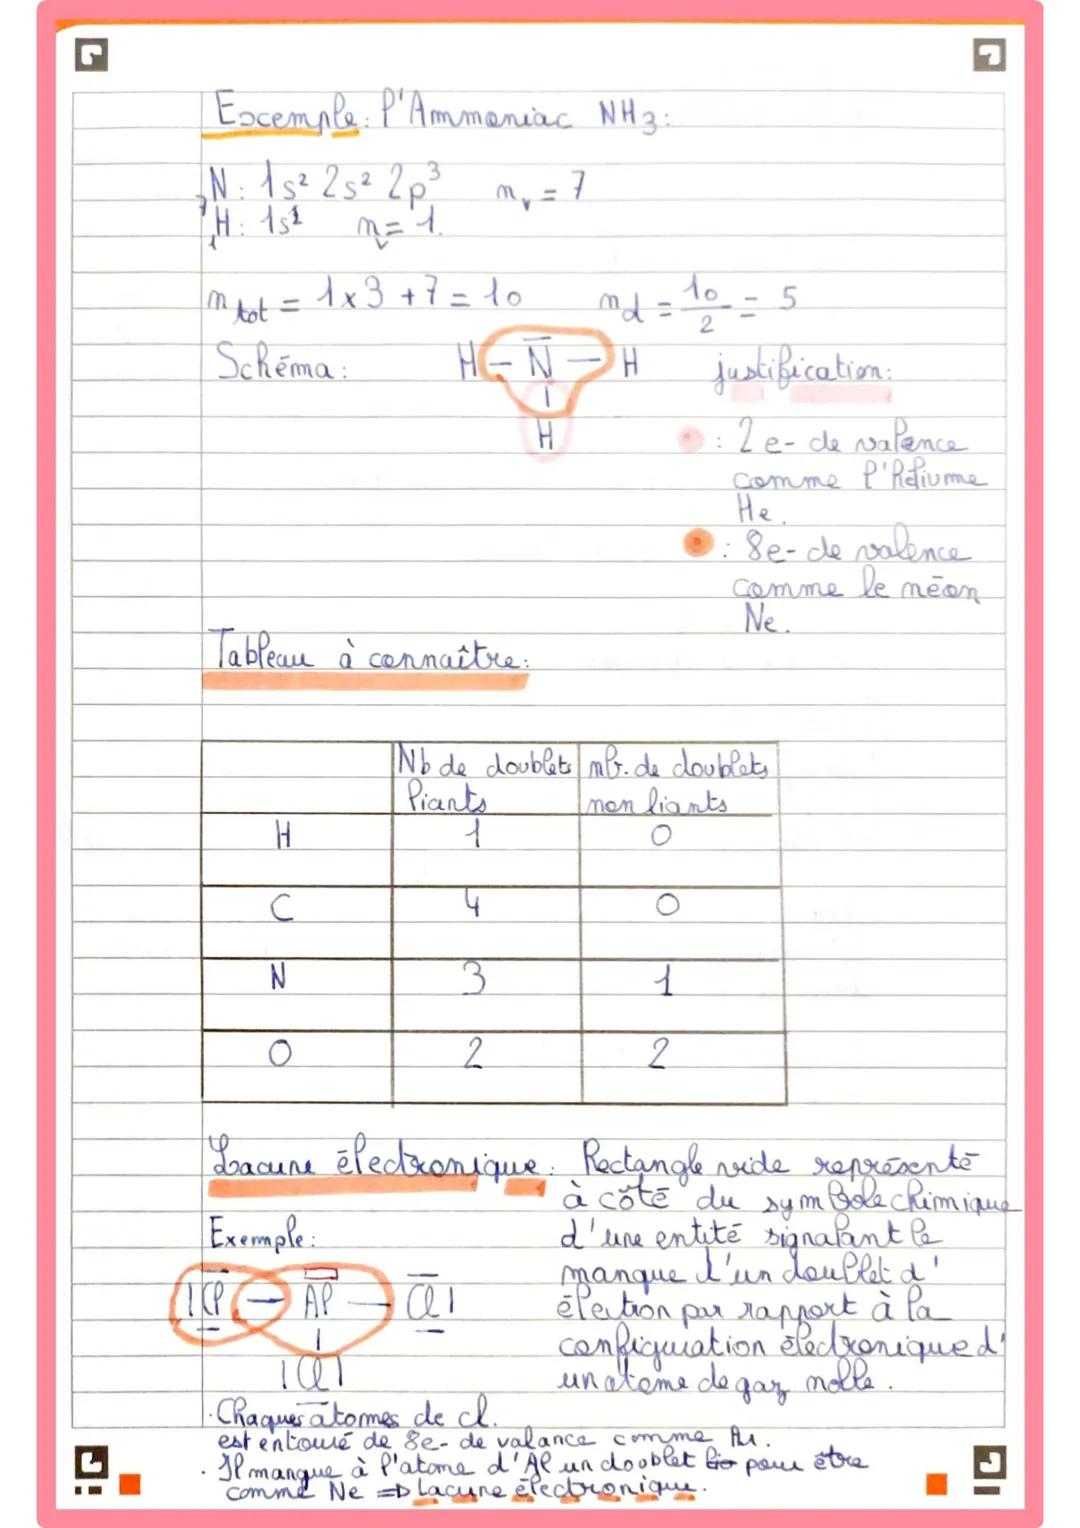 Excemple: l'Ammoniac NH3:
7N: 1s² 2s² 2p³ nv = 7
1H: 1s1 nv = 1.
ntot = 1x3 + 7 = 10 nd = 10/2 = 5
Schéma: H - N - H justification:
H
: 2 e- de valence
comme l'héliume
He.
: 8e- de valence
comme le néon
Ne.
Tableau à connaître:
Nb de doublets liants nb. de doublets non liants
H 1 0
C 4 0
N 3 1
O 2 2
Lacune électronique: Rectangle vide représenté
à côté du symbole chimique
Exemple: d'une entité signalant le
manque d'un doublet d'
|Cl - Al - Cl| éléction par rapport à la
configuration électronique d'
|Cl| un atome de gaz noble.
. Chaques atomes de cl.
est entouré de 8e- de valance comme Ar.
. Il manque à l'atome d'Al un doublet pour être
comme Ne => lacune électronique.